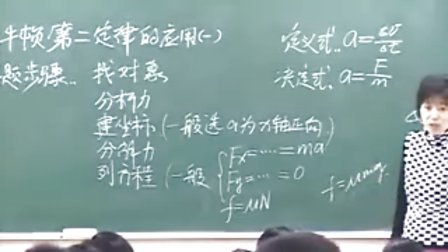 牛顿第二定律的应用(一)
定义式: a=Δv/Δt
决定式: a=F/m
题步骤: 找对象
分析力
建坐标(一般选a为x轴正向)
分解力
列方程(一般{Fx=……=ma
Fy=……=0
f=μN
f=μmg